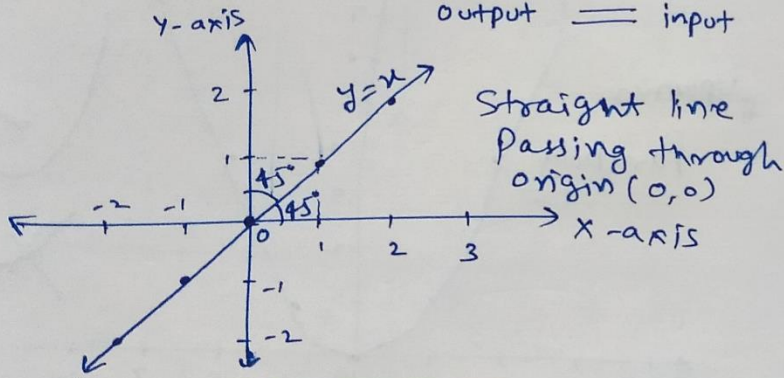 Y-axis
output = input
y=x
2
Straight line
Passing through
origin (0,0)
1
45°
45°
-2
-1
0
1
2
3
X-axis
-1
-2